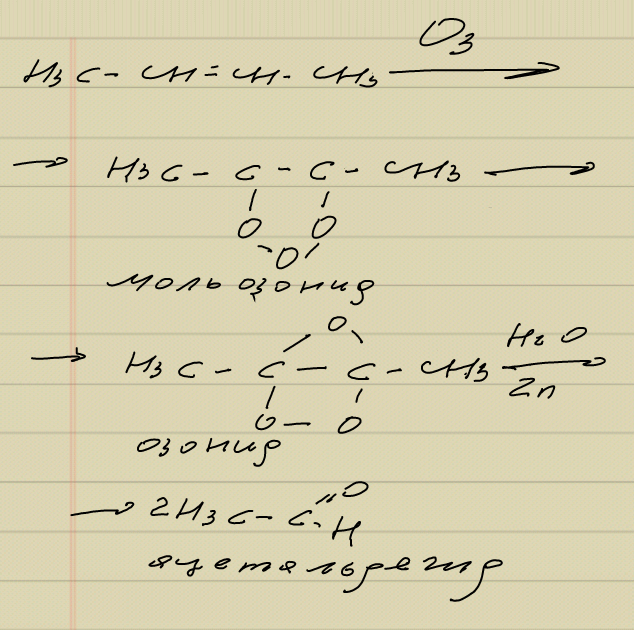 O3
H3C - CH = CH - CH3 ⟶
→ H3C - C - C - CH3 ⟶
O O
O
моль озонид
O
→ H3C - C - C - CH3 H2O ⟶
Zn
O - O
озонид
→ 2H3C - C =O
H
ацетальдегид